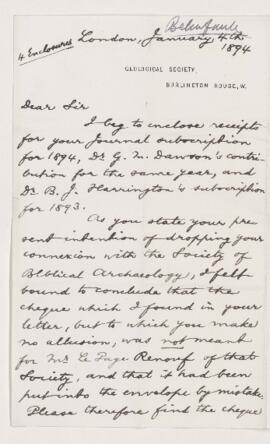 Belinfante
4 Enclosures London, January 4th
1894
GEOLOGICAL SOCIETY,
BURLINGTON HOUSE, W.
Dear Sir
I beg to enclose receipts
for your Journal subscription
for 1894, Dr G. M. Dawson's contri-
bution for the same year, and
Dr B. J. Harrington's subscription
for 1893.
As you state your pre-
sent intention of dropping your
connexion with the Society of
Biblical Archaeology, I felt
bound to conclude that the
cheque which I found in your
letter, but to which you make
no allusion, was not meant
for Mr Le Page Renouf of that
Society, and that it had been
put into the envelope by mistake.
Please therefore find the cheque